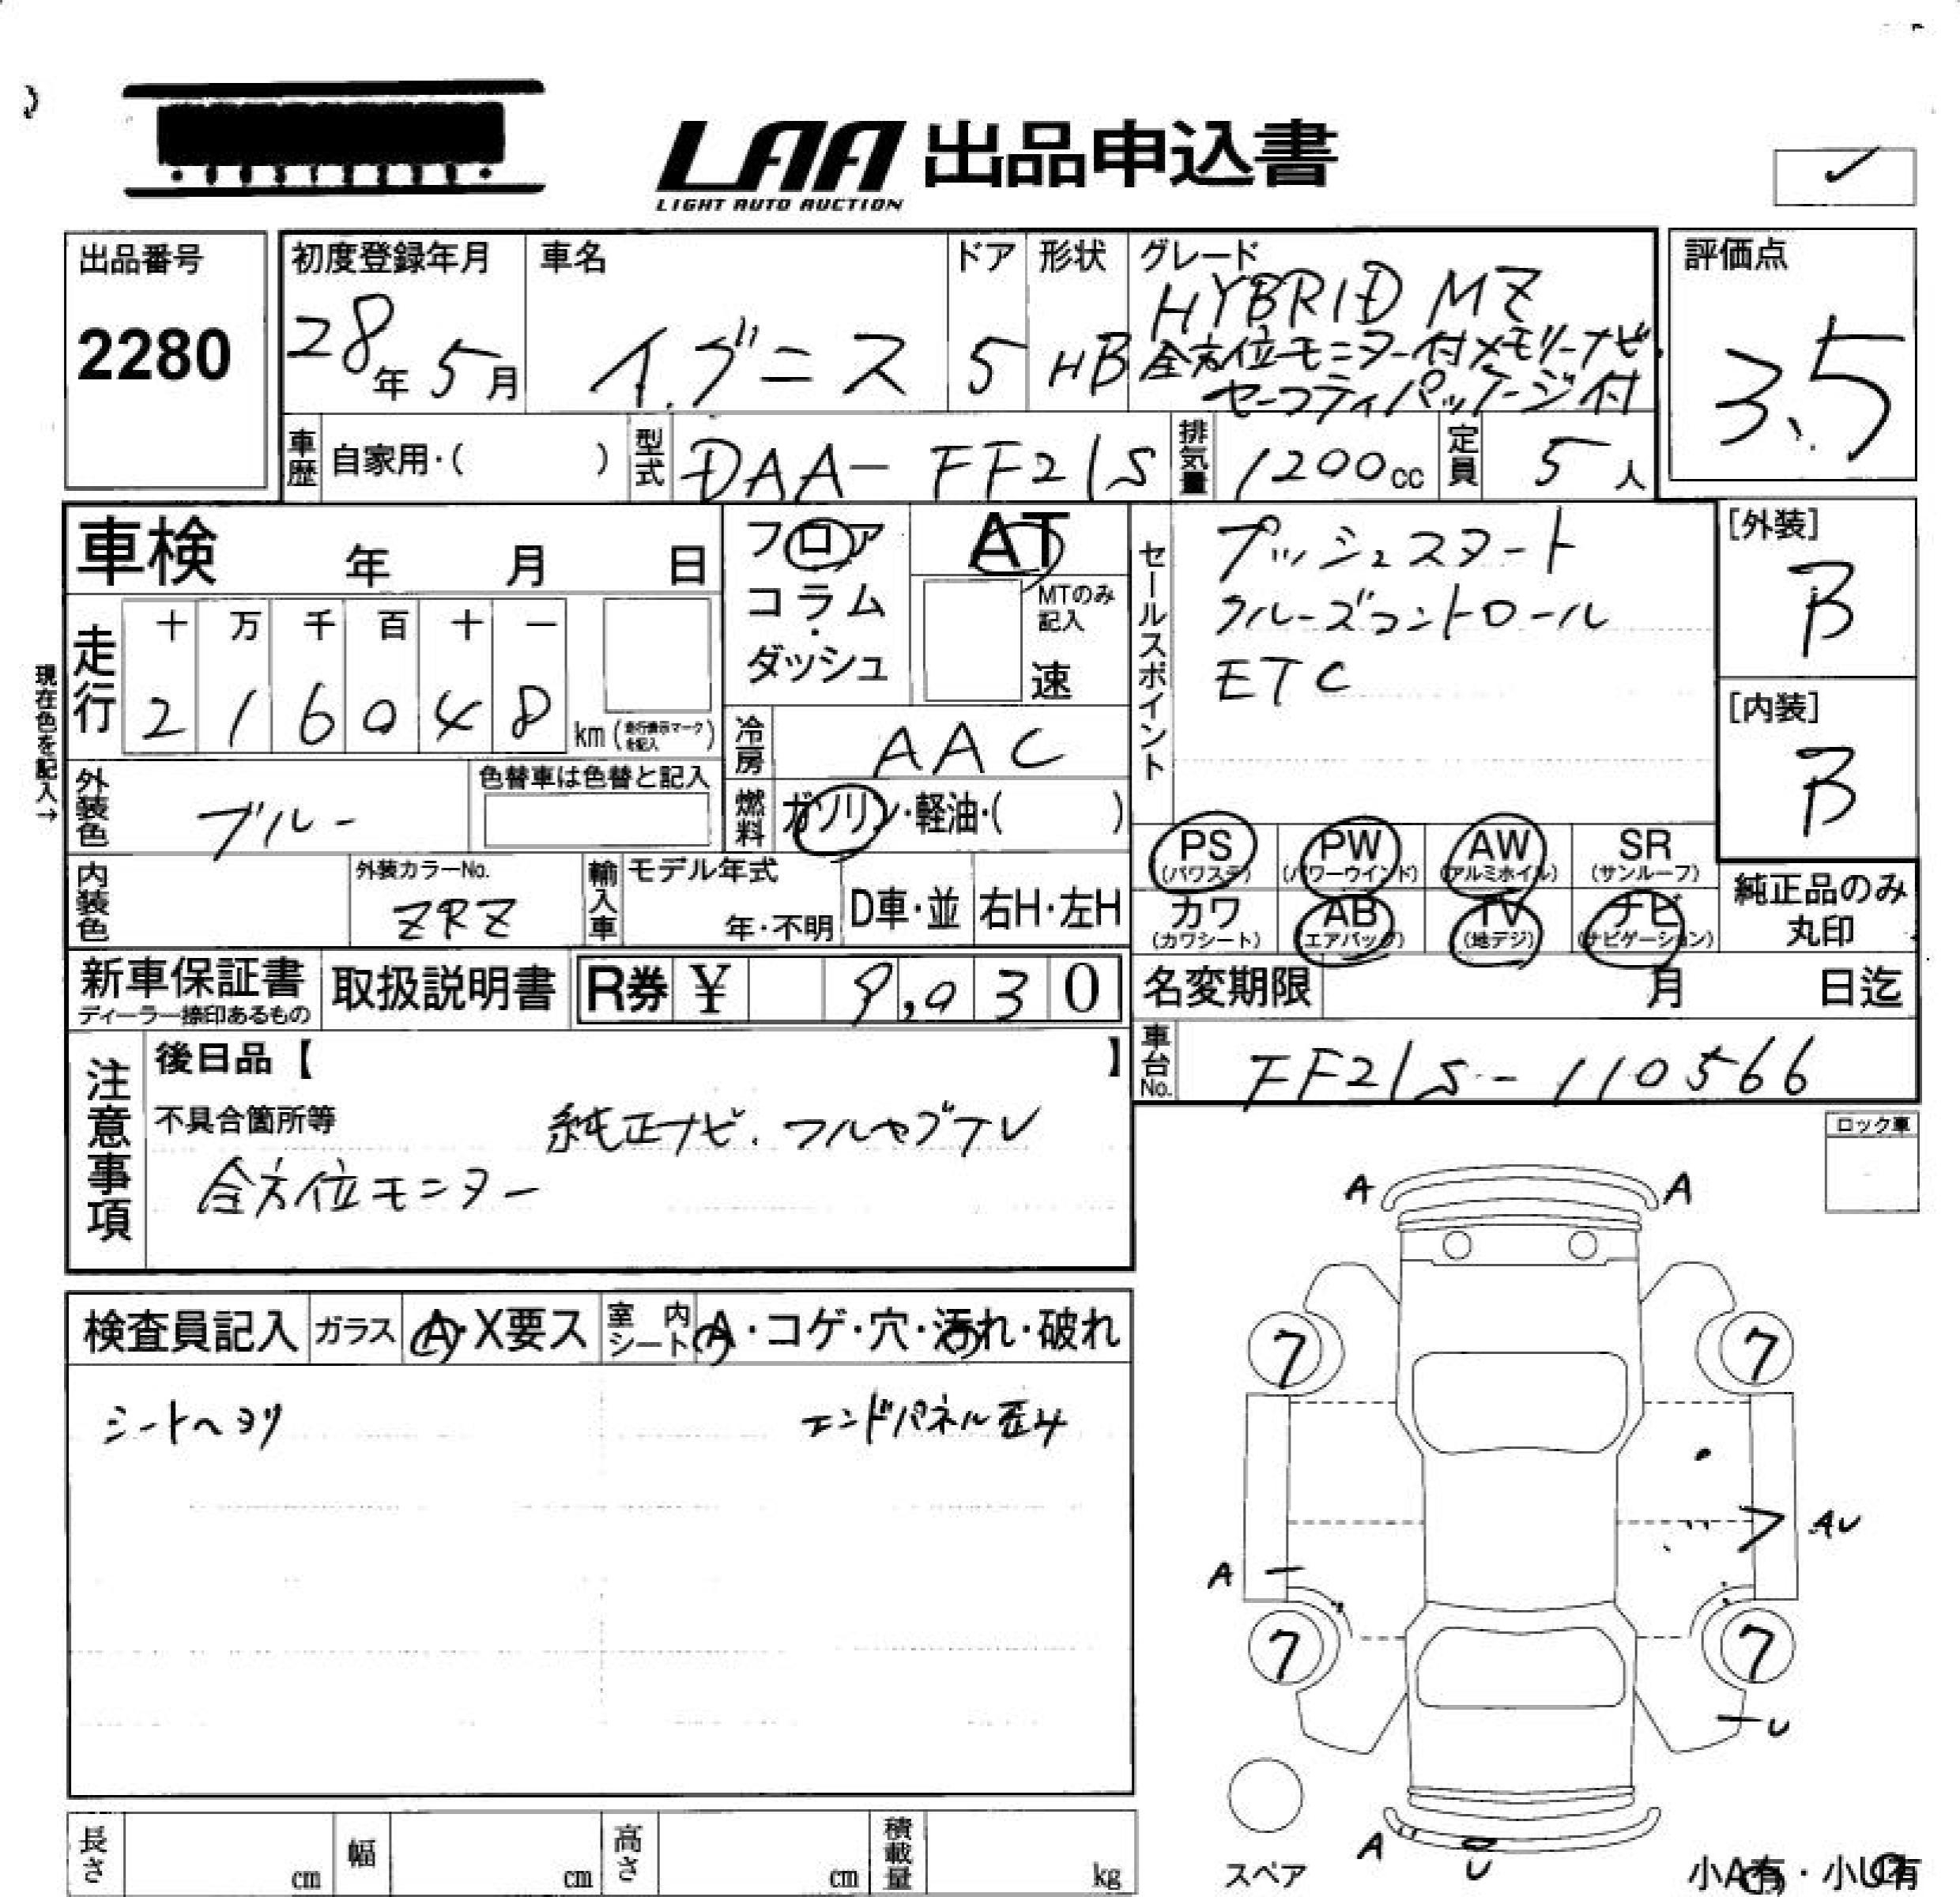 LAA 出品申込書
LIGHT AUTO AUCTION
出品番号
2280
初度登録年月
28年 5月
車名
イグニス
ドア
5
形状
HB
グレード
HYBRID MZ
全方位モニター付メモリーナビ・
セーフティパッケージ付
評価点
3.5
車歴 自家用・( )
型式 DAA-FF21S
排気量 1200cc
定員 5人
車検 年 月 日
フロア
コラム
・
ダッシュ
AT
MTのみ
記入
速
セールスポイント
プッシュスタート
クルーズコントロール
ETC
[外装]
B
[内装]
B
走行
十 万 千 百 十 一
2 1 6 0 4 8 km(走行表示マークを記入)
現在色を記入→
冷房 AAC
外装色 ブルー
色替車は色替と記入
燃料 ガソリン・軽油・( )
PS (パワステ)
PW (パワーウインド)
AW (アルミホイル)
SR (サンルーフ)
カワ (カワシート)
AB (エアバッグ)
TV (地デジ)
ナビ (ナビゲーション)
純正品のみ
丸印
内装色
外装カラーNo.
ZRZ
輸入車
モデル年式
年・不明
D車・並
右H・左H
新車保証書
ディーラー捺印あるもの
取扱説明書
R券 ¥ 9,030
名変期限 月 日迄
車台No. FF21S-110566
注意事項
後日品【 】
不具合箇所等
純正ナビ・フルセグTV
全方位モニター
ロック車
検査員記入
ガラス A・X要ス
室内シート A・コゲ・穴・汚れ・破れ
シートヘタリ
エンドパネル歪み
A A
7 7
AU
A
7 7
U
A U
スペア
小A有・小U有
長さ cm
幅 cm
高さ cm
積載量 kg